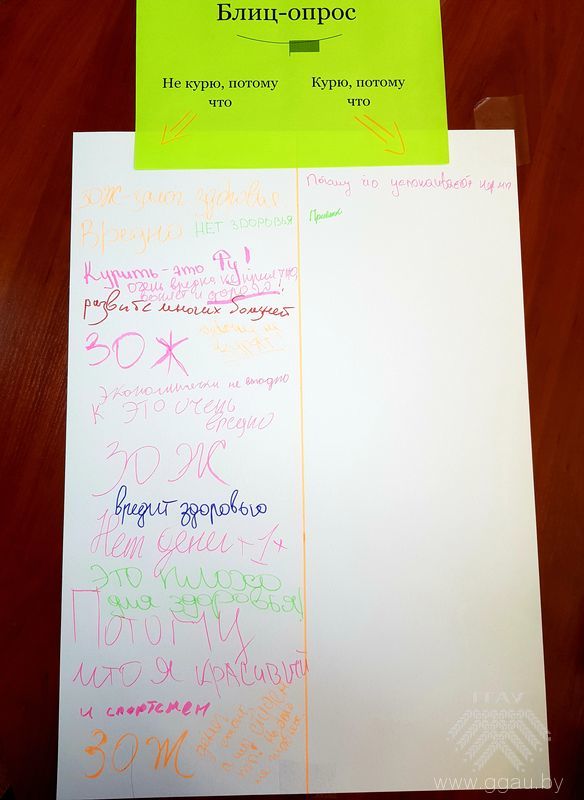 Блиц-опрос
Не курю, потому
что
Курю, потому
что
ЗОЖ-залог здоровья
Вредно НЕТ ЗДОРОВЬЯ
Курить-это Фу!
очень вредно
и дорого!
развитие многих болезней
ЗОЖ
Экономически не выгодно
К ЭТО очень
вредно
ЗОЖ
вредит здоровью
Нет денег +1
ЭТО плохо
для здоровья!
Потому
что я красивый
и спортсмен
ЗОЖ
Потому что успокаивает
ГГАУ
www.ggau.by